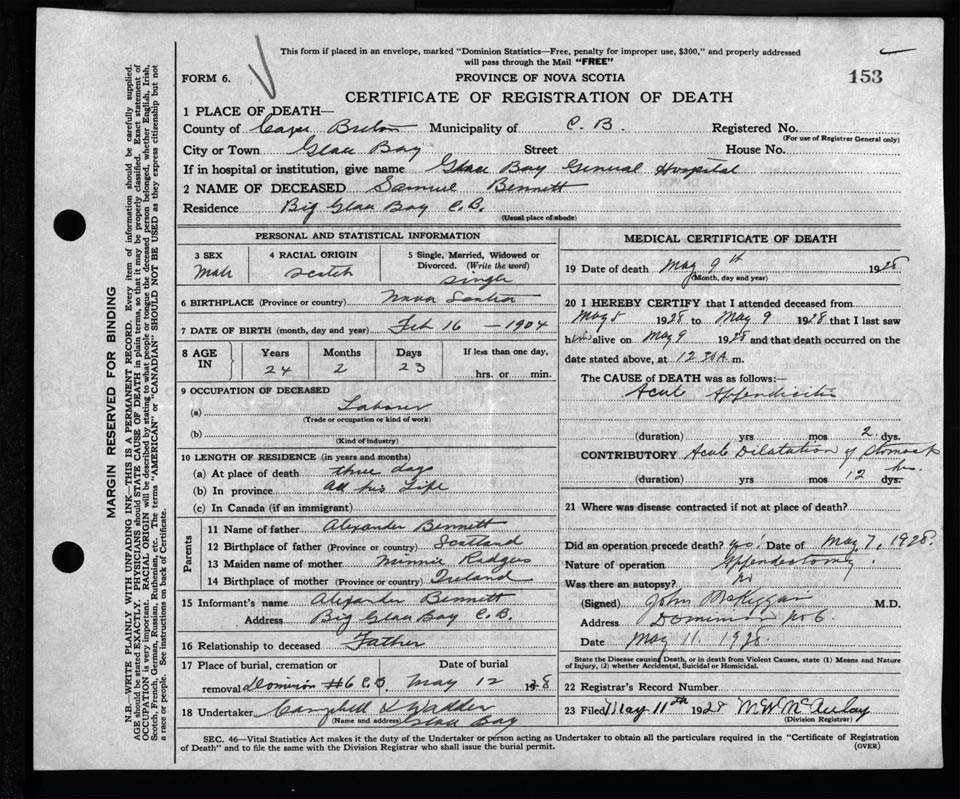 This form if placed in an envelope, marked "Dominion Statistics—Free, penalty for improper use, $300," and properly addressed
will pass through the Mail "FREE"
FORM 6.
PROVINCE OF NOVA SCOTIA
153
CERTIFICATE OF REGISTRATION OF DEATH
1 PLACE OF DEATH—
County of Cape Breton Municipality of C. B. Registered No.
(For use of Registrar General only)
City or Town Glace Bay Street House No.
If in hospital or institution, give name Glace Bay General Hospital
2 NAME OF DECEASED Samuel Bennett
Residence Big Glace Bay C.B.
(Usual place of abode)
PERSONAL AND STATISTICAL INFORMATION
3 SEX Male
4 RACIAL ORIGIN Scotch
5 Single, Married, Widowed or Divorced. (Write the word) Single
6 BIRTHPLACE (Province or country) Nova Scotia
7 DATE OF BIRTH (month, day and year) Feb 16 - 1904
8 AGE IN Years 24 Months 2 Days 23 If less than one day, hrs. or min.
9 OCCUPATION OF DECEASED
(a) Laborer
(Trade or occupation or kind of work)
(b)
(Kind of industry)
10 LENGTH OF RESIDENCE (in years and months)
(a) At place of death three days
(b) In province All his Life
(c) In Canada (if an immigrant)
Parents
11 Name of father Alexander Bennett
12 Birthplace of father (Province or country) Scotland
13 Maiden name of mother Minnie
14 Birthplace of mother (Province or country) Ireland
15 Informant's name Alexander Bennett
Address Big Glace Bay C.B.
16 Relationship to deceased Father
17 Place of burial, cremation or removal Dominion #6 C.B. Date of burial May 12 1928
18 Undertaker Campbell
(Name and address) Glace Bay
MEDICAL CERTIFICATE OF DEATH
19 Date of death May 9th 1928
(Month, day and year)
20 I HEREBY CERTIFY that I attended deceased from
May 8 1928 to May 9 1928 that I last saw
him alive on May 9 1928 and that death occurred on the
date stated above, at 12 30 A. m.
The CAUSE of DEATH was as follows:—
Acute Appendicitis
(duration) yrs mos 2 dys.
CONTRIBUTORY Acute Dilatation of Stomach
(duration) yrs mos 12 dys. hrs.
21 Where was disease contracted if not at place of death?
Did an operation precede death? yes. Date of May 7, 1928.
Nature of operation Appendectomy
Was there an autopsy? No
(Signed) John McKiggan M.D.
Address Dominion No 6.
Date May 11. 1928
State the Disease causing Death, or in death from Violent Causes, state (1) Means and Nature
of Injury, (2) whether Accidental, Suicidal or Homicidal.
22 Registrar's Record Number
23 Filed May 11th 1928 M. W. McAulay
(Division Registrar)
SEC. 46—Vital Statistics Act makes it the duty of the Undertaker or person acting as Undertaker to obtain all the particulars required in the "Certificate of Registration
of Death" and to file the same with the Division Registrar who shall issue the burial permit.
(OVER)
MARGIN RESERVED FOR BINDING
N.B.—WRITE PLAINLY WITH UNFADING INK—THIS IS A PERMANENT RECORD. Every item of information should be carefully supplied.
AGE should be stated EXACTLY. PHYSICIANS should STATE CAUSE OF DEATH in plain terms, so that it may be properly classified. Exact statement of
OCCUPATION is very important. RACIAL ORIGIN will be described by stating to what people or tongue the deceased person belonged, whether English, Irish,
Scotch, French, German, Russian, Ruthenian, etc. The terms "AMERICAN" or "CANADIAN" SHOULD NOT BE USED as they express citizenship but not
a race or people. See instructions on back of Certificate.